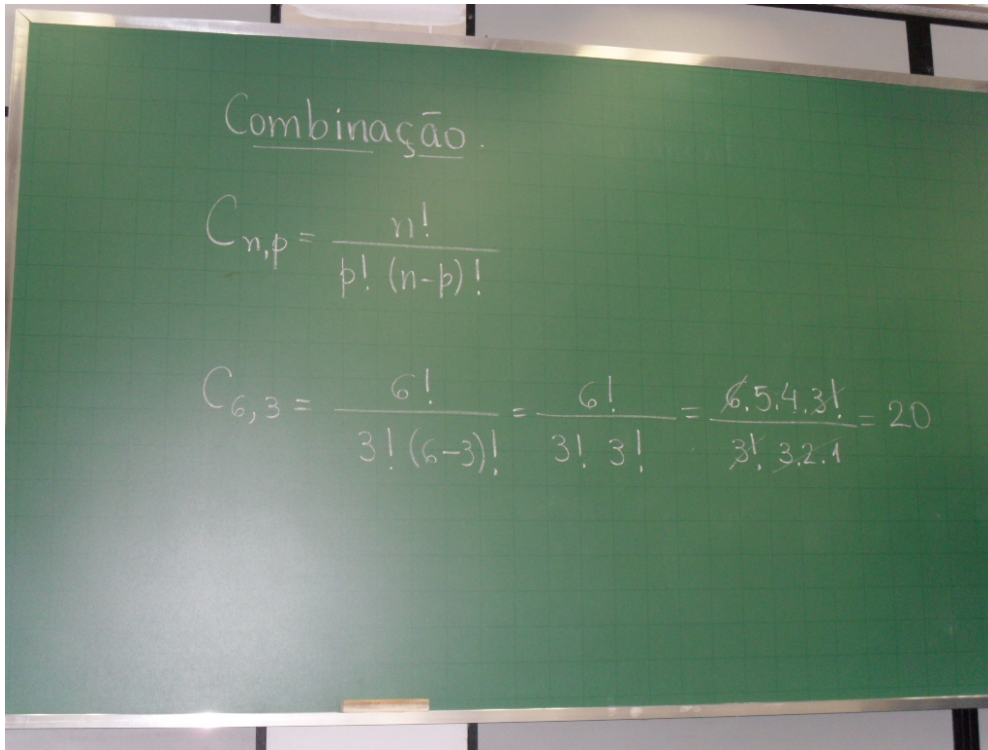 Combinação.
C n,p = n! / p! (n-p)!
C 6,3 = 6! / 3! (6-3)! = 6! / 3! 3! = 6.5.4.3! / 3!. 3.2.1 = 20